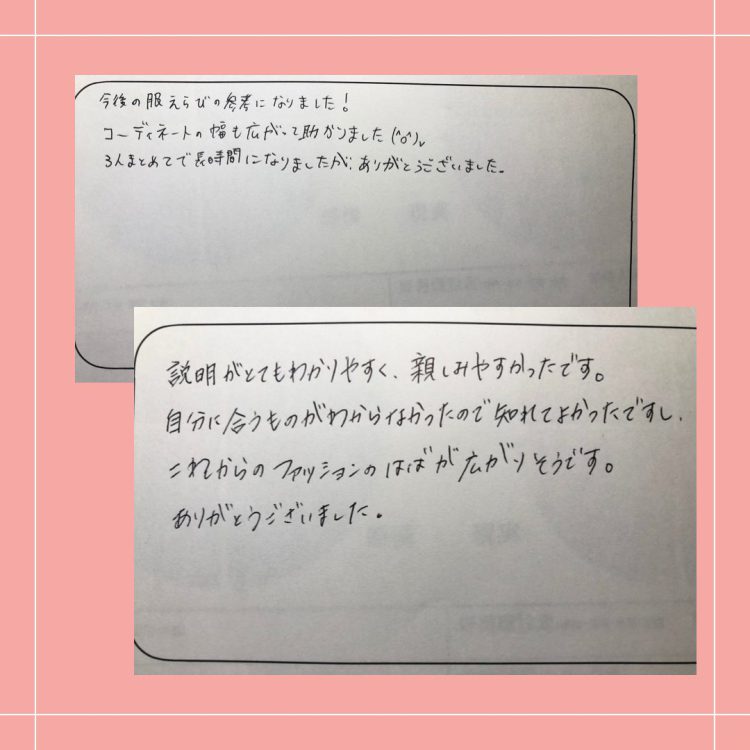 今後の服えらびの参考になりました！
コーディネートの幅も広がって助かりました(^o^)v
3人まとめてで長時間になりましたが、ありがとうございました。
説明がとてもわかりやすく、親しみやすかったです。
自分に合うものがわからなかったので知れてよかったですし、
これからのファッションのはばが広がりそうです。
ありがとうございました。